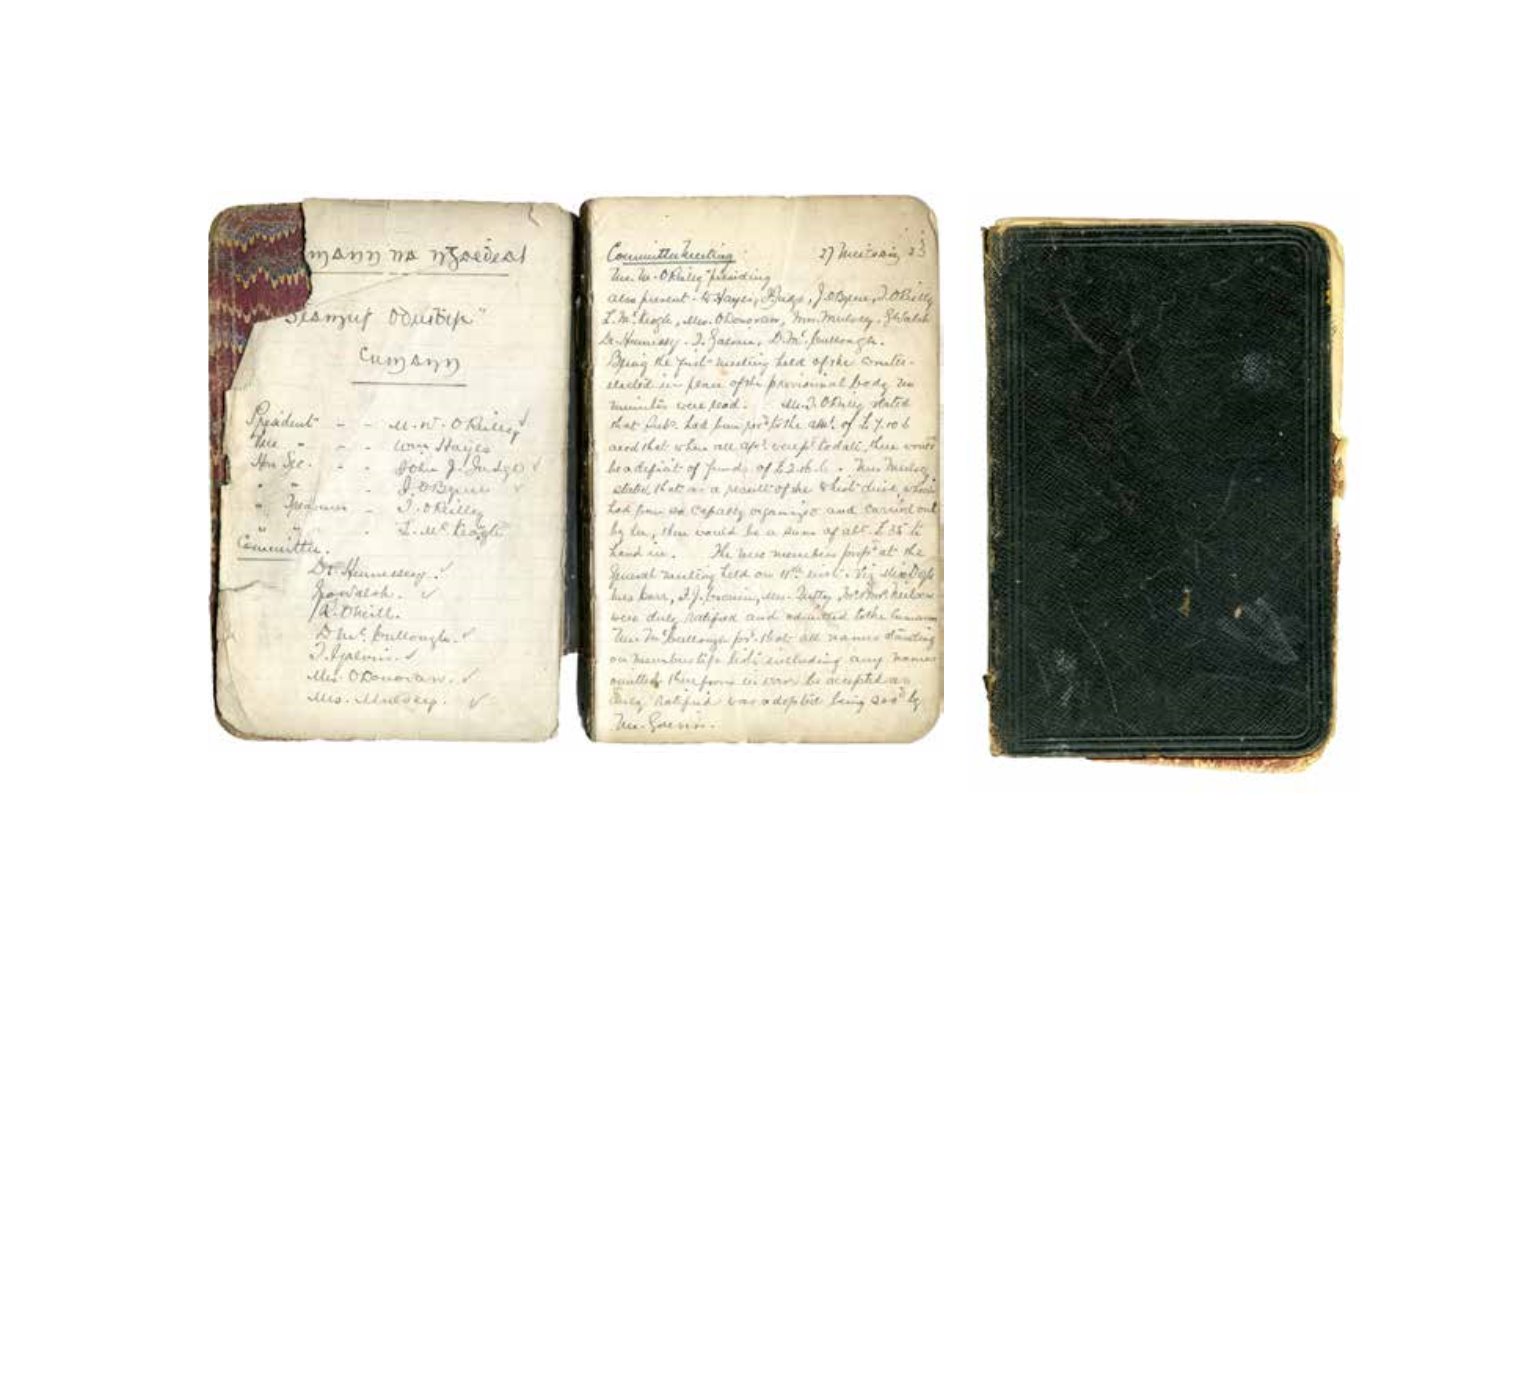 mann na nGaedeal
Cumann
President - - M. W. O'Reilly
Vice " - - Wm Hayes
Hon Sec. - - John J. Judge
" " - J. O'Byrne
" Treasurer - T. O'Reilly
" " - L. McKeogh
Committee.
Dr. Hennessy.
Geo Walsh.
A. O'Neill.
D. McCullough.
T. Galvin.
Mrs O'Donovan.
Mrs. Mulvey.
Committee Meeting 27 23
Mr. M. O'Reilly presiding
also present - W Hayes, Judge, J. O'Byrne, T. O'Reilly
L. McKeogh, Mrs. O'Donovan, Mrs. Mulvey, G Walsh
Dr. Hennessy. T. Galvin, D. McCullough.
Being the first meeting held of the
elected in place of the provisional body no
minutes were read. Mr. T. O'Reilly stated
that subs. had been to the amt. of £7.10.6
and that when all were to date, there would
be a deficit of funds of £2.16.6. Mrs Mulvey
stated that as a result of the whist drive which
had been so capably organized and carried out
by her, there would be a sum of abt. £35 to
hand in. The new members at the
general meeting held on 11th inst. Viz
were duly ratified and admitted to the Cumann
Mr McCullough that all names standing
on membership list including any names
omitted therefrom in error be accepted as
duly ratified was adopted being by
Mr. Galvin.